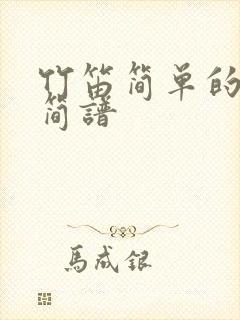 竹笛简单的
简谱
馬成银